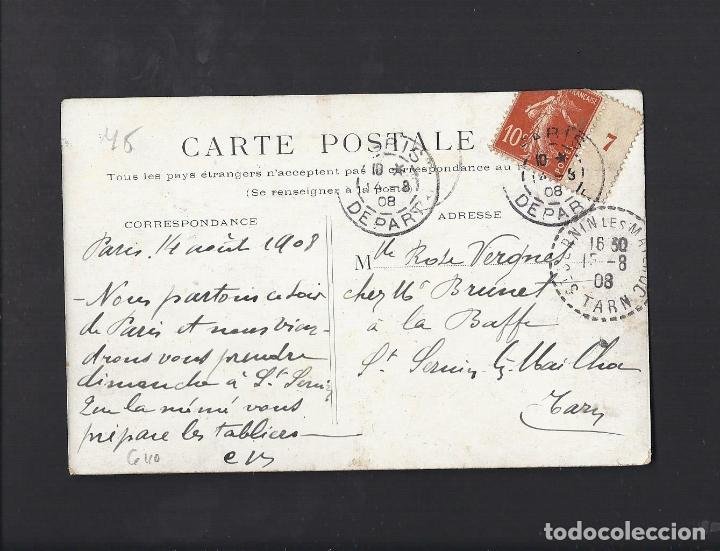 45
CARTE POSTALE
Tous les pays étrangers n'acceptent pas la correspondance au
(Se renseigner à la poste
CORRESPONDANCE
ADRESSE
10c
7
PARIS
10 *
14 - 8
08
DEPART
PARIS
10 *
14 - 8
08
DEPART
St SERNIN LES MAILHOC
16 30
15 - 8
08
TARN
Paris 14 août 1908
- Nous partons ce soir
de Paris et nous vien-
drons vous prendre
dimanche à St Sernin
Que la mémé vous
prépare les tabliers -
Mlle Rose Vergnes
chez Mr Brunet
à la Baffe
St Sernin
Tarn
todocoleccion.net